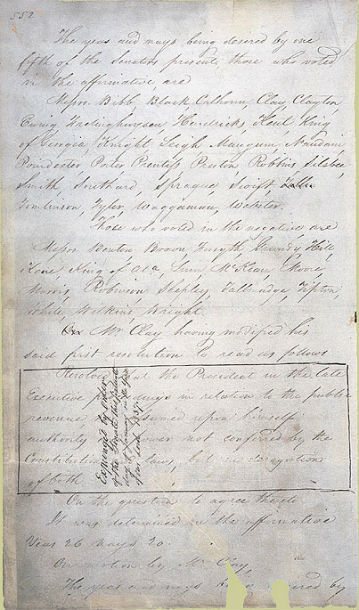 552
The yeas and nays being desired by one
fifth of the Senators present, those who voted
in the affirmative are
Messrs Bibb, Black, Calhoun, Clay, Clayton
Ewing Frelinghuysen, Hendricks, Kent, King
of Georgia Knight Leigh Mangum, Naudain
Poindexter Porter Prentiss Preston Robbins Silsbee,
Smith, Southard, Sprague Swift
Tomlinson Tyler Waggaman, Webster.
Those who voted in the negative are
Messrs Benton Brown Forsyth Grundy Hill,
Kane King of Ala Linn McKean Moore,
Morris Robinson Shepley Tallmadge, Tipton
White Wilkins Wright.
Mr Clay having modified his
said first resolution to read as follows
Resolved that the President in the late
Executive proceedings in relation to the public
revenue has assumed upon himself
authority and power not conferred by the
Constitution and laws, but in derogation
of both
Expunged by order
of the Senate, this
1837
On the question to agree thereto
It was determined in the affirmative
Yeas 26 nays 20.
On motion by Mr Clay,
The yeas and nays being desired by